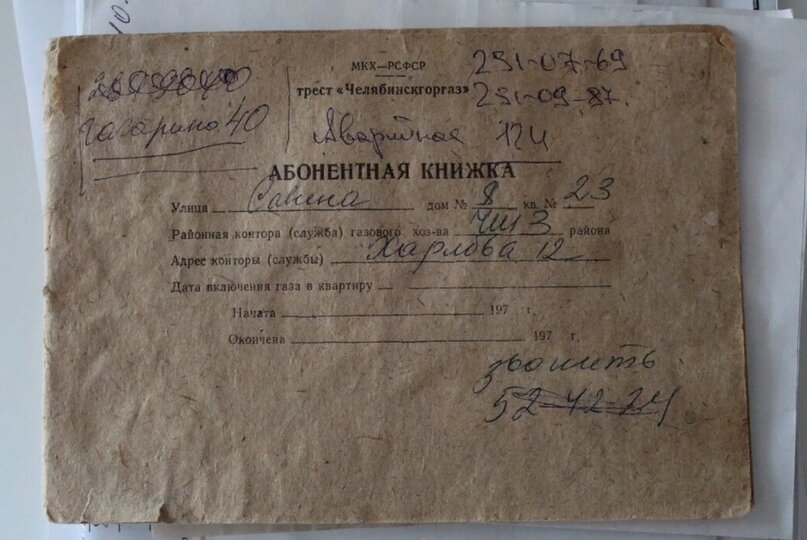 МКХ—РСФСР
трест «Челябинскгоргаз»
251-07-69
251-09-87.
Гагарина 40
Аварийная
АБОНЕНТНАЯ КНИЖКА
Улица Савина дом № 8 кв. № 23
Районная контора (служба) газового хоз-ва ЧШЗ района
Адрес конторы (службы) Харлова 12
Дата включения газа в квартиру
Начата 197 г.
Окончена 197 г.
звонить
52-42-24